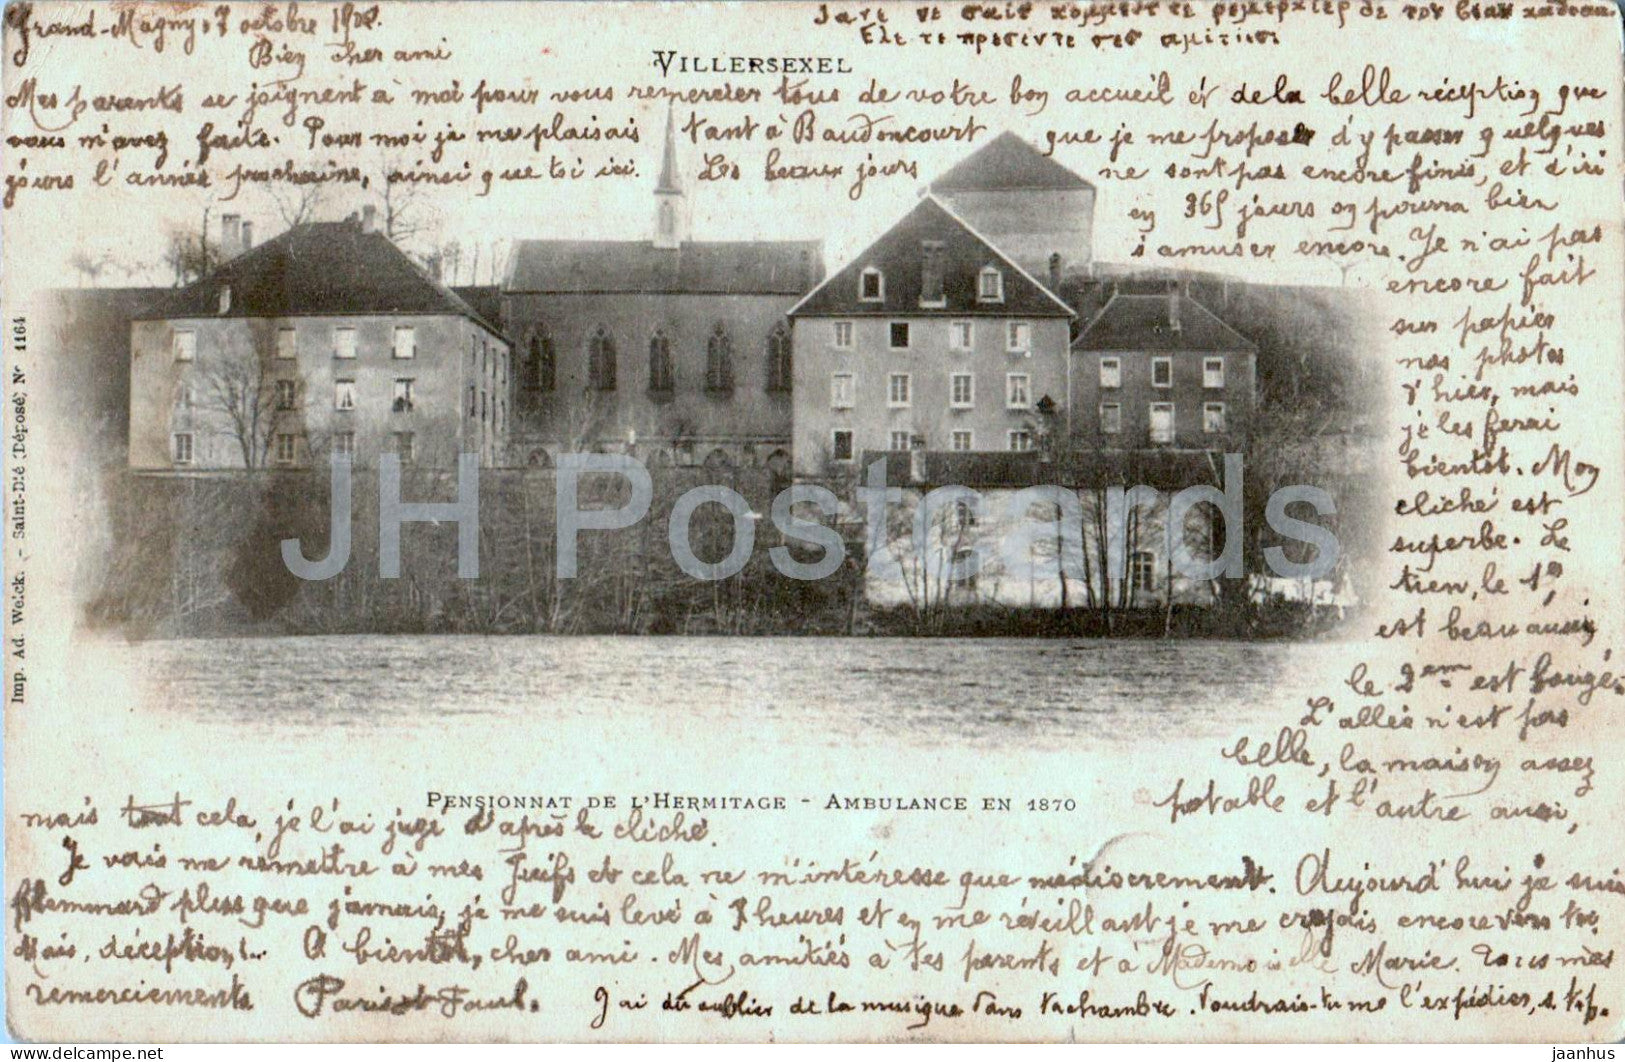 Grand-Magny, 7 octobre 1902.
Bien cher ami
Ele te
VILLERSEXEL
Mes parents se joignent à moi pour vous remercier tous de votre bon accueil et de la belle réception que
vous m'avez faite. Pour moi je me plaisais tant à Baudoncourt que je me propose d'y passer quelques
jours l'année prochaine, ainsi que toi ici. Les beaux jours ne sont pas encore finis, et d'ici
en 365 jours on pourra bien
s'amuser encore. Je n'ai pas
encore fait
sur papier
nos photos
d'hier, mais
je les ferai
bientôt. Mon
cliché est
superbe. Le
tien, le 1er,
est beau aussi,
le 2em est bougé.
L'allée n'est pas
belle, la maison assez
potable et l'autre aussi,
PENSIONNAT DE L'HERMITAGE - AMBULANCE EN 1870
mais tout cela, je l'ai jugé d'après le cliché.
Je vais me remettre à mes Juifs et cela ne m'intéresse que médiocrement. Aujourd'hui je suis
flemmard plus que jamais, je me suis levé à 7 heures et en me réveillant je me croyais encore vers toi.
Mais, déception!... A bientôt, cher ami. Mes amitiés à tes parents et à Mademoiselle Marie. Tous mes
remerciements Parisot Paul.
J'ai dû oublier de la musique dans ta chambre. Voudrais-tu me l'expédier, s. t. p.
Imp. Ad. Weick. - Saint-Dié (Déposé) No 1164
JH Postcards
jaanhus
jaanhus.com